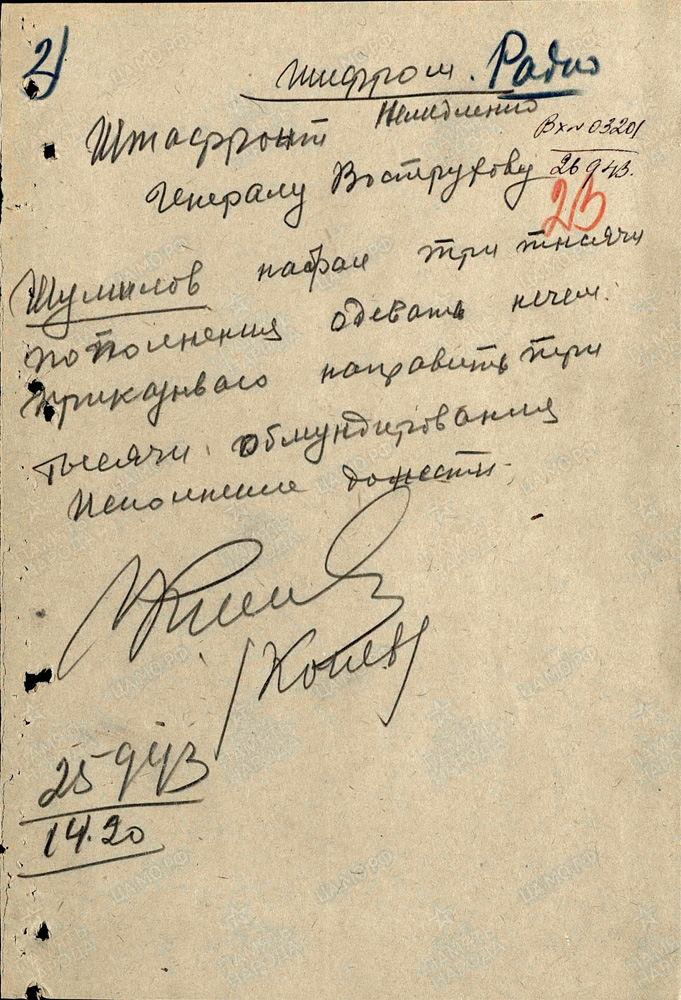 21
Шифром. Радио
Немедленно
Штафронт
Вх № 03201
26 9 43.
Генералу Вострухову
23
Шумилов набрал три тысячи
пополнения одевать нечем.
Приказываю направить три
тысячи обмундирования
Исполнение донести.
/Конев/
25 9 43
14.20